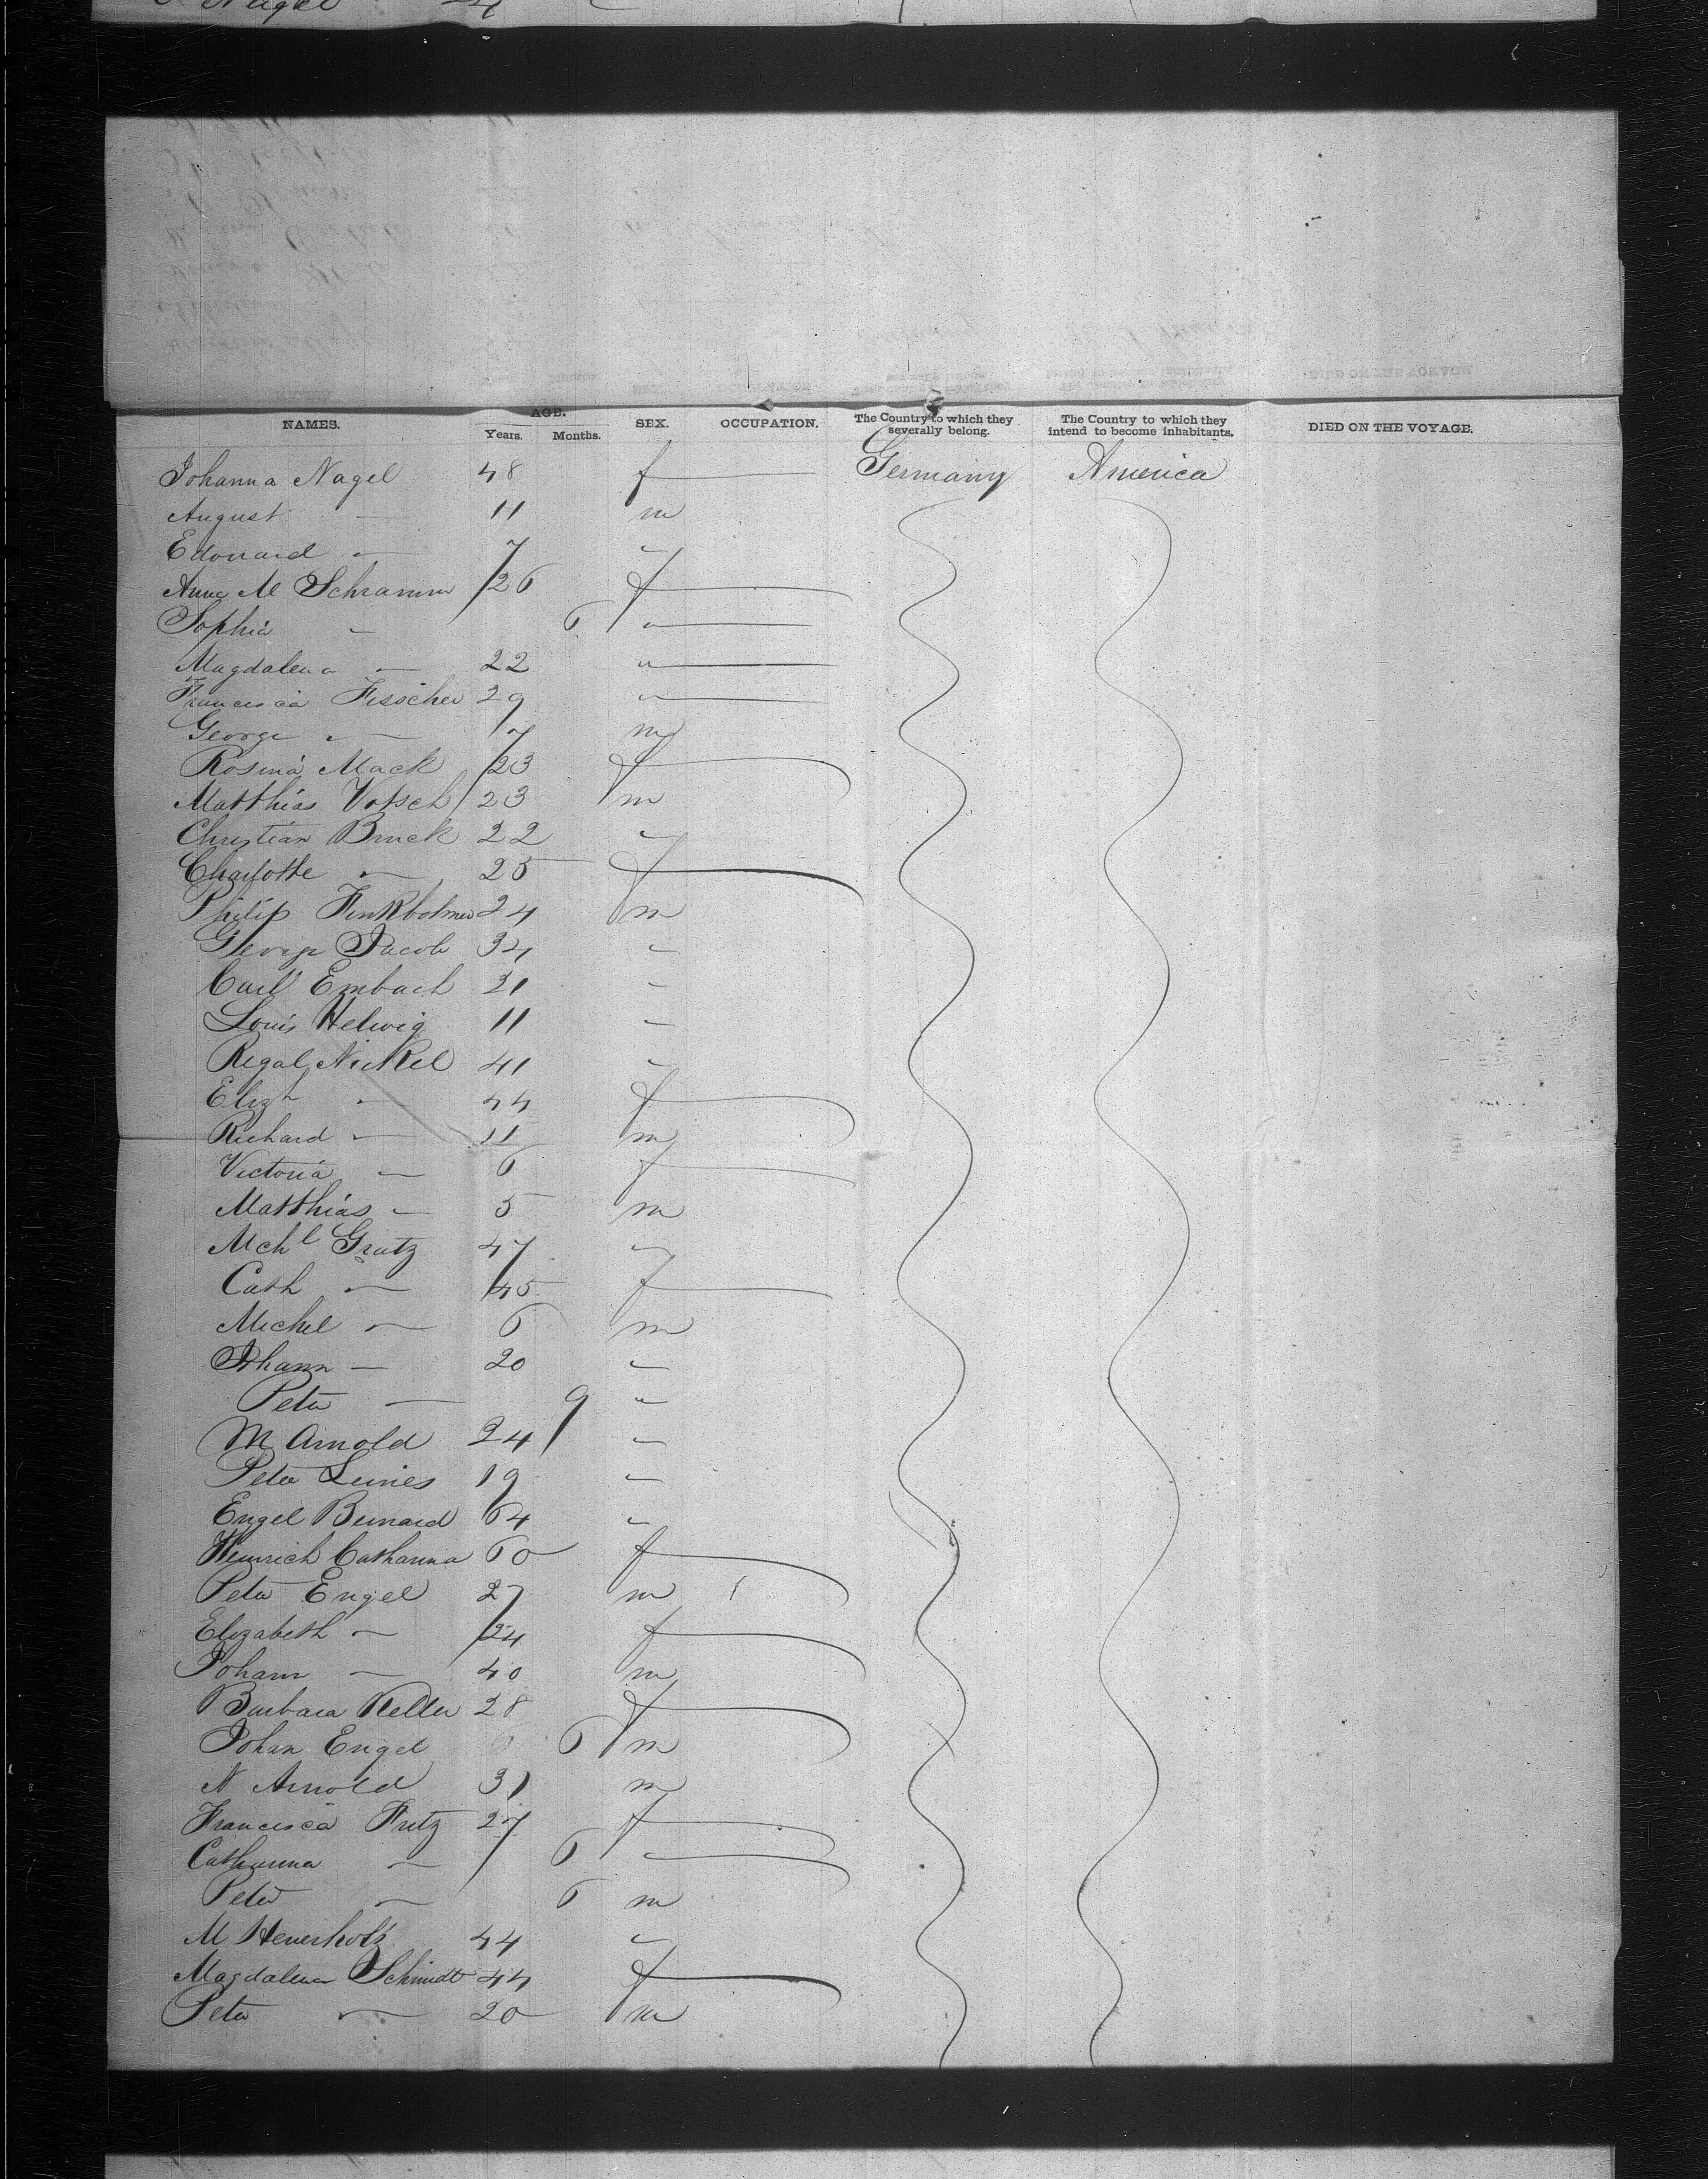 Nagel 24
NAMES. AGE. Years. Months. SEX. OCCUPATION. The Country to which they severally belong. The Country to which they intend to become inhabitants. DIED ON THE VOYAGE.
Johanna Nagel 48 f — Germany America
August — 11 m
Edouard — 7 "
Anna M Schramm 26 f —
Sophia — 6 " —
Magdalena — 22 " —
Francisca Fisscher 29 " —
George " — 7 m
Rosina Mack 23 f
Matthias Votsch 23 m
Christian Bruck 22 "
Charlotte — 25 f
Philip 24 m
George Jacob 34 "
Carl Embach 21 "
Louis Helwig 11 "
Regal Nickel 41 "
Elizh — 44 f
Richard — 11 m
Victoria — 6 f
Matthias — 5 m
Mchl Gratz 47 "
Cath — 45 f —
Michel — 6 m
Johann — 20 "
Peter — 9 "
M Arnold 24 "
Peter Leines 19 "
Engel Bernard 64 "
Heinrich Catharina 60 f
Peter Engel 27 m
Elizabeth — 24 f
Johann — 40 m
Barbara Keller 28 f
Johan Engel 6 m
N Arnold 31 m
Francisca Fritz 27 f
Catharina — 6 "
Peter — 6 m
M Heuerholz 44 "
Magdalena Schmidt 44 f
Peter — 20 m